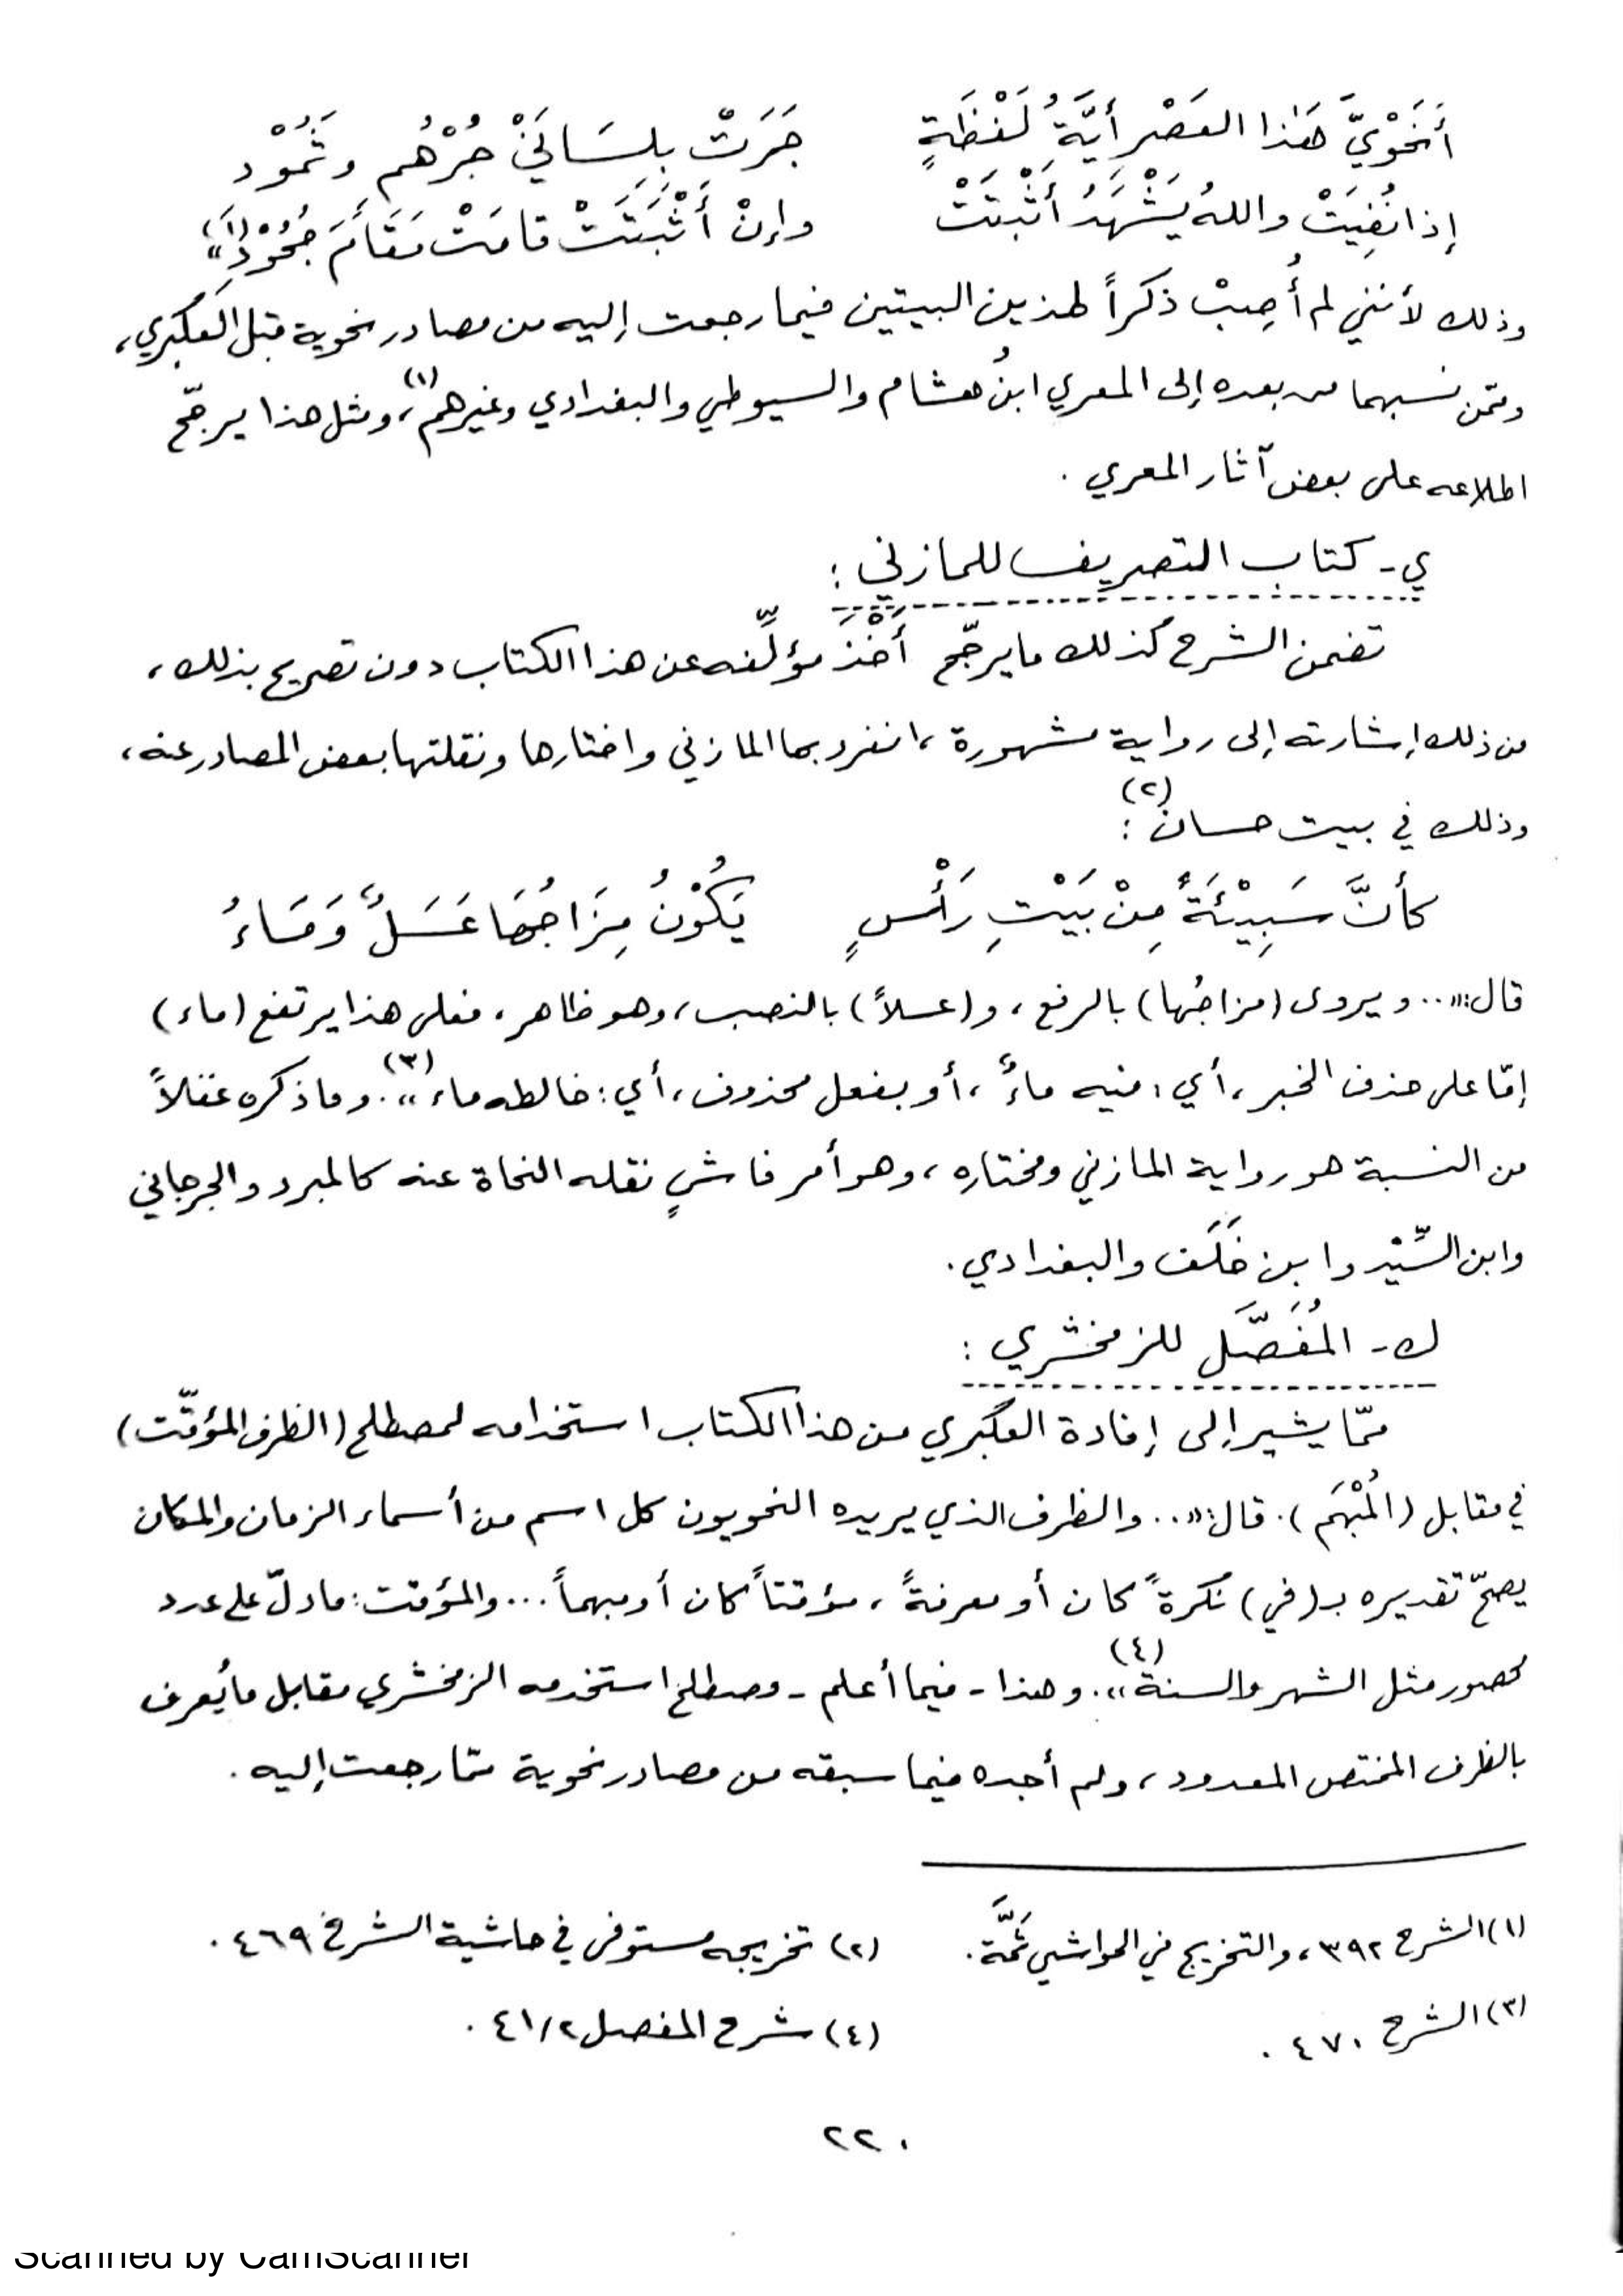 أَنَحْوِيَّ هَذا العَصْرِ أيَّةُ لَفْظَةٍ جَرَتْ بِلِسَانَيْ جُرْهُمٍ وثَمُوْدِ
إذا نُفِيَتْ واللهُ يَشْهَدُ أَثْبَتَتْ وإنْ أَثْبَتَتْ قامَتْ مَقَامَ جُحُوْدِ (١)»
وذلك لأنني لم أُصِبْ ذكراً لهذين البيتين فيما رجعت إليه من مصادر نحوية قبل العكبري،
وممّن نسبهما من بعده إلى المعري ابنُ هشام والسيوطي والبغدادي وغيرهم (١)، ومثل هذا يرجّح
اطلاعه على بعض آثار المعري .
ي - كتاب التصريف للمازني :
تضمن الشرح كذلك ما يرجّح أَخْذَ مؤلِّفه عن هذا الكتاب دون تصريح بذلك،
من ذلك إشارته إلى رواية مشهورة، انفرد بها المازني واختارها ونقلتها بعض المصادر عنه،
وذلك في بيت حسان (٢) :
كأنَّ سَبِيْئَةً مِنْ بَيْتِ رَأْسٍ يَكُوْنُ مِزَاجُهَا عَسَلٌ وَمَاءُ
قال: «.. ويروى (مزاجُها) بالرفع، و(عسلاً) بالنصب، وهو ظاهر، فعلى هذا يرتفع (ماء)
إمّا على حذف الخبر، أي: فيه ماءٌ، أو بفعل محذوف، أي: خالطه ماء» (٣). وما ذكره غفلاً
من النسبة هو رواية المازني ومختارِه، وهو أمر فاشٍ نقله النحاة عنه كالمبرد والجرجاني
وابن السِّيْد وابن خَلَف والبغدادي.
ك - المُفَصَّل للزمخشري :
ممّا يشير إلى إفادة العكبري من هذا الكتاب استخدامه لمصطلح (الظرف المؤقّت)
في مقابل (المُبْهَم). قال: «.. والظرف الذي يريده النحويون كل اسم من أسماء الزمان والمكان
يصحّ تقديره بـ (في) نكرةً كان أو معرفةً، مؤقتاً كان أو مبهماً ... والمؤقت: ما دلّ على عدد
محصور مثل الشهر والسنة» (٤). وهذا - فيما أعلم - مصطلح استخدمه الزمخشري مقابل ما يُعرف
بالظرف المختص المعدود، ولم أجده فيما سبقه من مصادر نحوية ممّا رجعت إليه .
(١) الشرح ٣٩٢، والتخريج في الحواشي ثَمَّة. (٢) تخريجه مستوفى في حاشية الشرح ٤٦٩ .
(٣) الشرح ٤٧٠ . (٤) شرح المفصل ٤١/٢ .
٢٢٠
Scanned by CamScanner